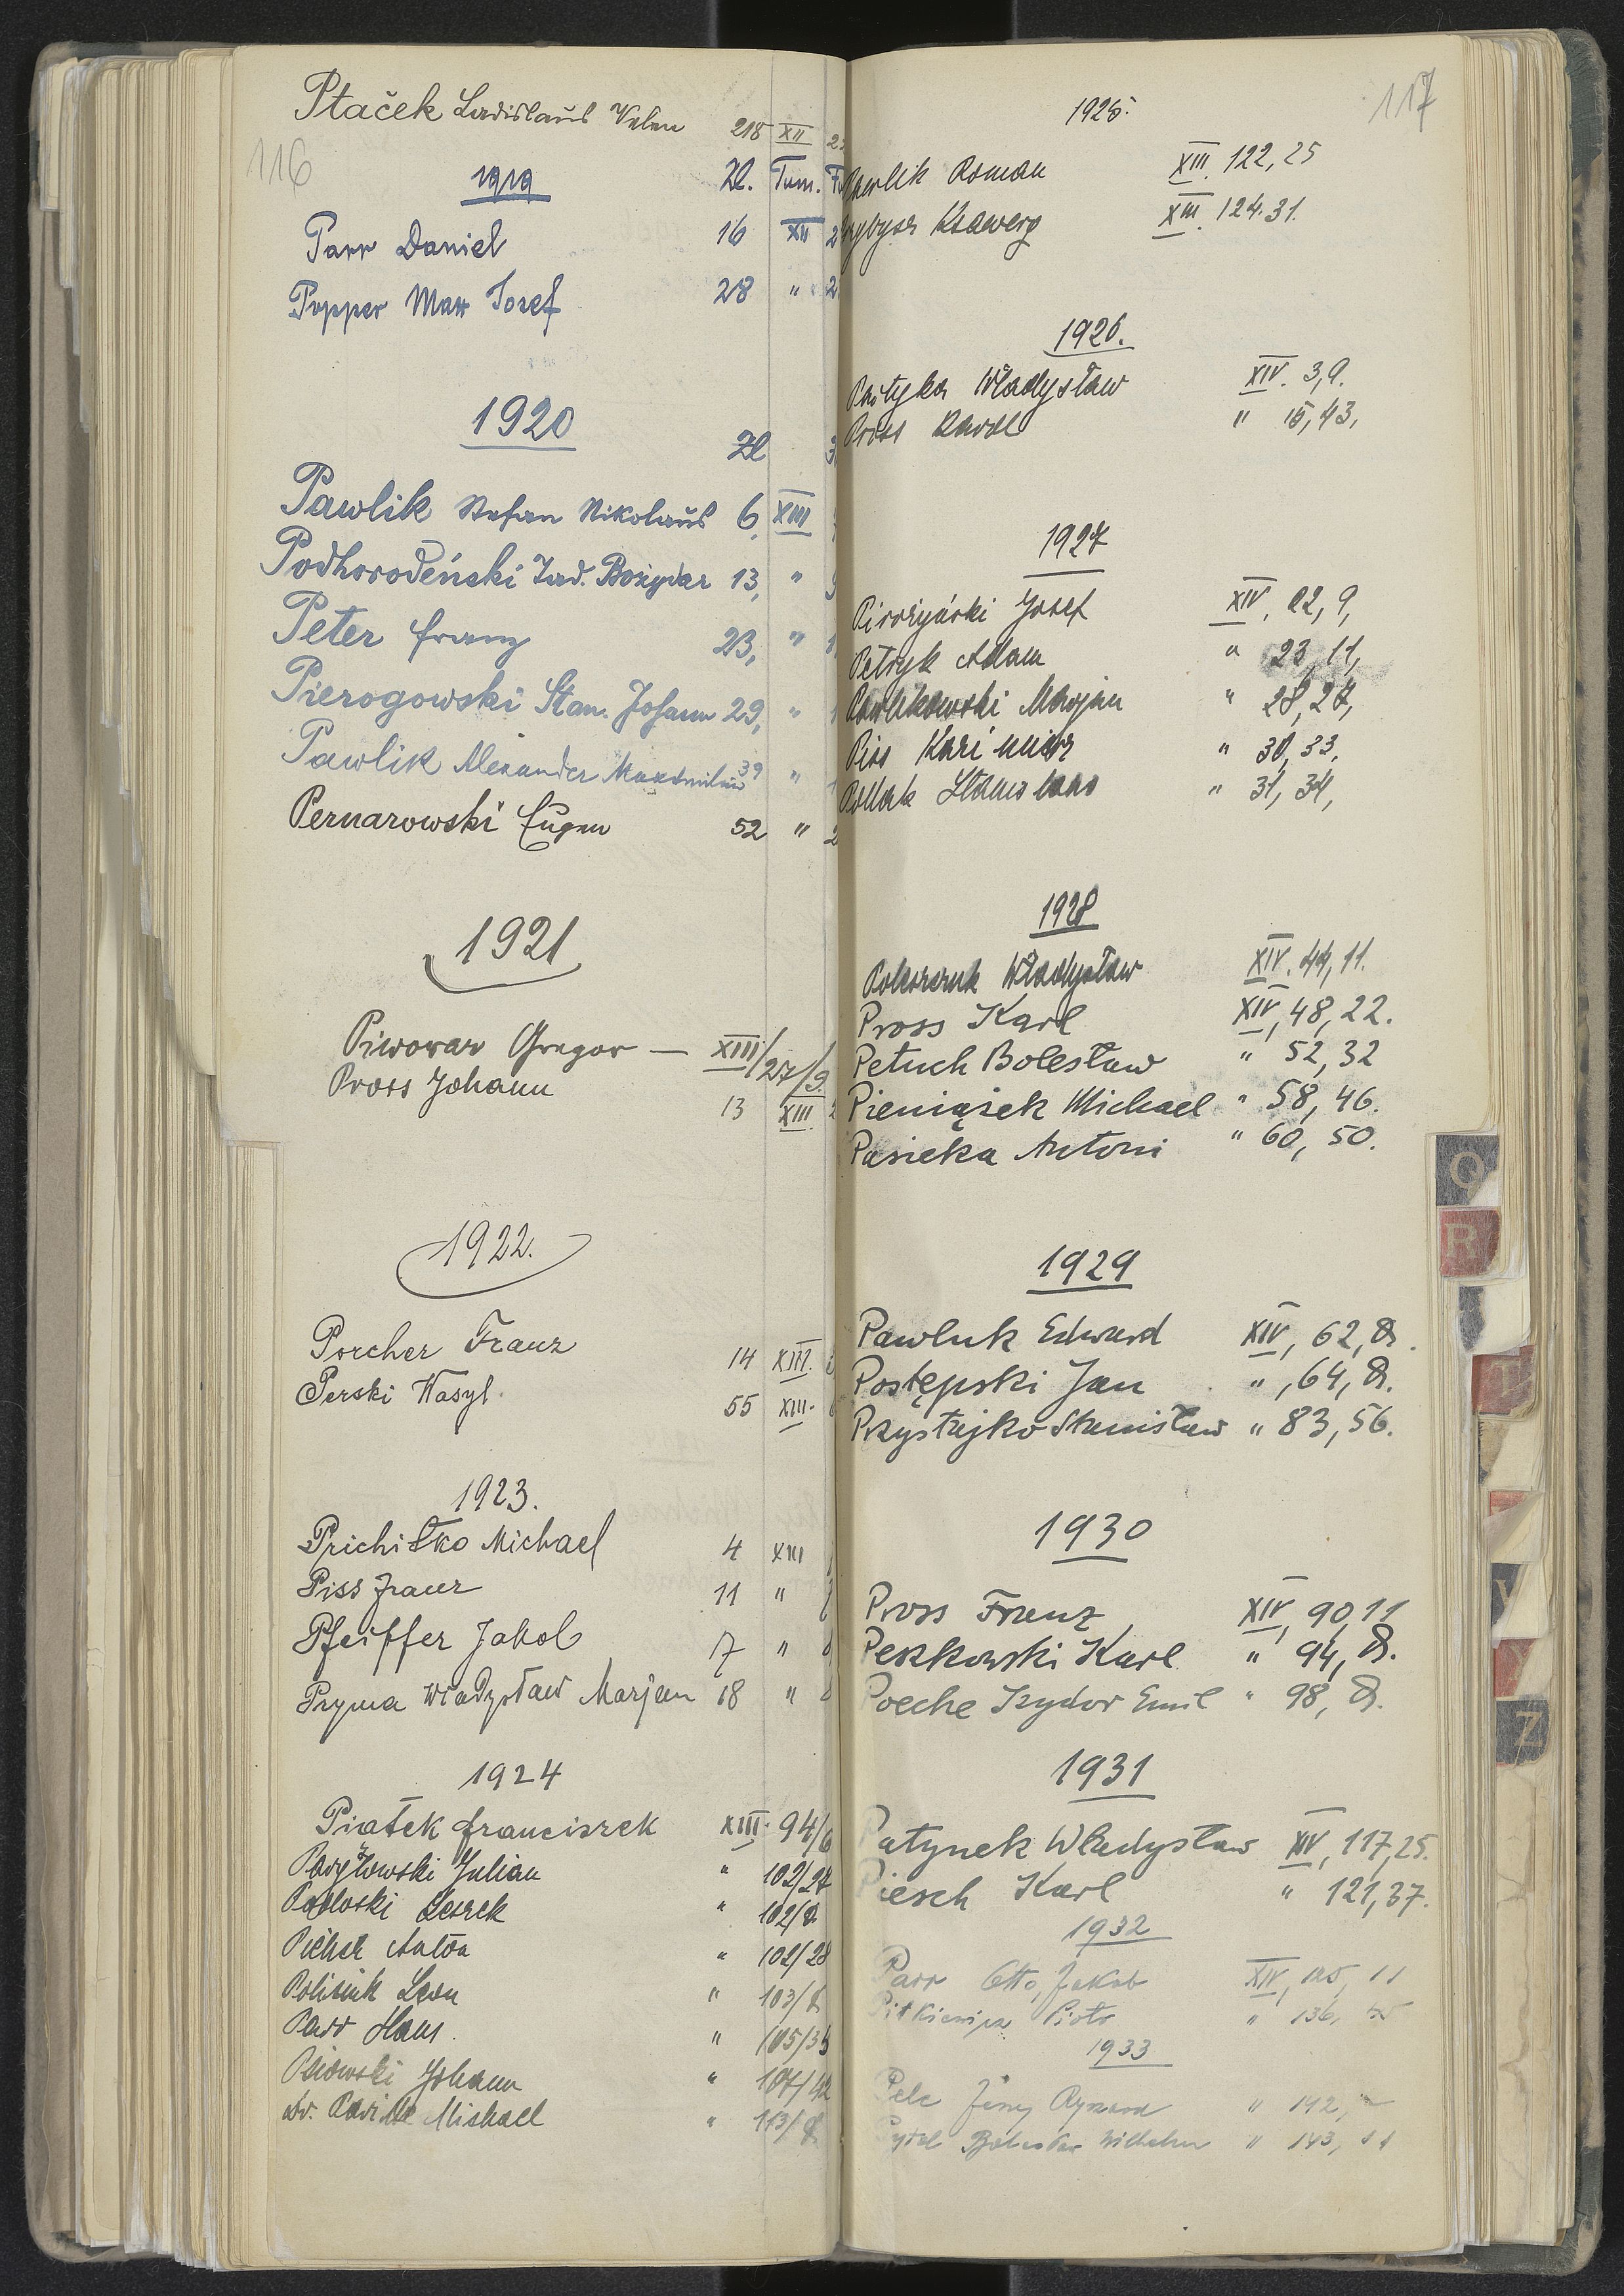 Ptaček Ladislaus Velen 218 XII
116
1919 Zl. Tom.
Parr Daniel 16 XII 2
Popper Max Josef 28 " 2
1920
Zl
Pawlik Stefan Nikolaus 6, XIII
Podhorodeński Tad. Bożydar 13, "
Peter Franz 23, "
Pierogowski Stan. Johann 29, "
Pawlik Alexander Maxdmilian 39 "
Pernarowski Eugen 52 " 2
1921
Piwowar Gregor — XIII/27/9.
Pross Johann 13 XIII. 2
1922.
Porcher Franz 14 XIII.
Perski Wasyl 55 XIII.
1923.
Prichitko Michael 4 XIII
Piss Franz 11 "
Pfeiffer Jakob 17 "
Pryma Władysław Marjan 18 "
1924
Piątek Franciszek XIII. 94/6
Julian " 102/27
Leszek " 102/
Anton " 102/28
Leon " 103/
Parr Hans " 105/35
Johann " 107/42
Michael " 113/
117
1925.
Pawlik Roman XIII. 122, 25
Ksawery XIII. 124. 31.
1926.
Partyka Władysław XIV. 3, 9.
Pross Karol " 15, 43,
1927
Josef XIV, 22, 9,
Petryk Adam " 23, 11,
Pawlikowski Marjan " 28, 27,
Piss Kazimierz " 30, 33,
Pollak Stanislaus " 31, 34,
1928
Władysław XIV. 44, 11.
Pross Karl XIV, 48, 22.
Petuch Bolesław " 52, 32
Pieniążek Michael " 58, 46.
Pasieka Antoni " 60, 50.
1929
Pawluk Edward XIV, 62,
Postępski Jan ", 64,
Przystajko Stanisław " 83, 56.
1930
Pross Franz XIV, 90, 11
Peszkowski Karl " 94,
Poeche Izydor Emil " 98,
1931
Patynek Władysław XIV, 117, 25.
Piesch Karl " 121, 37.
1932
Parr Otto, Jakob XIV, 125, 11
Pitkiewicz Piotr " 136,
1933
Pelc Jerzy Ryszard " 142,
Wilhelm " 143, 11
Q
R
T
V
Z